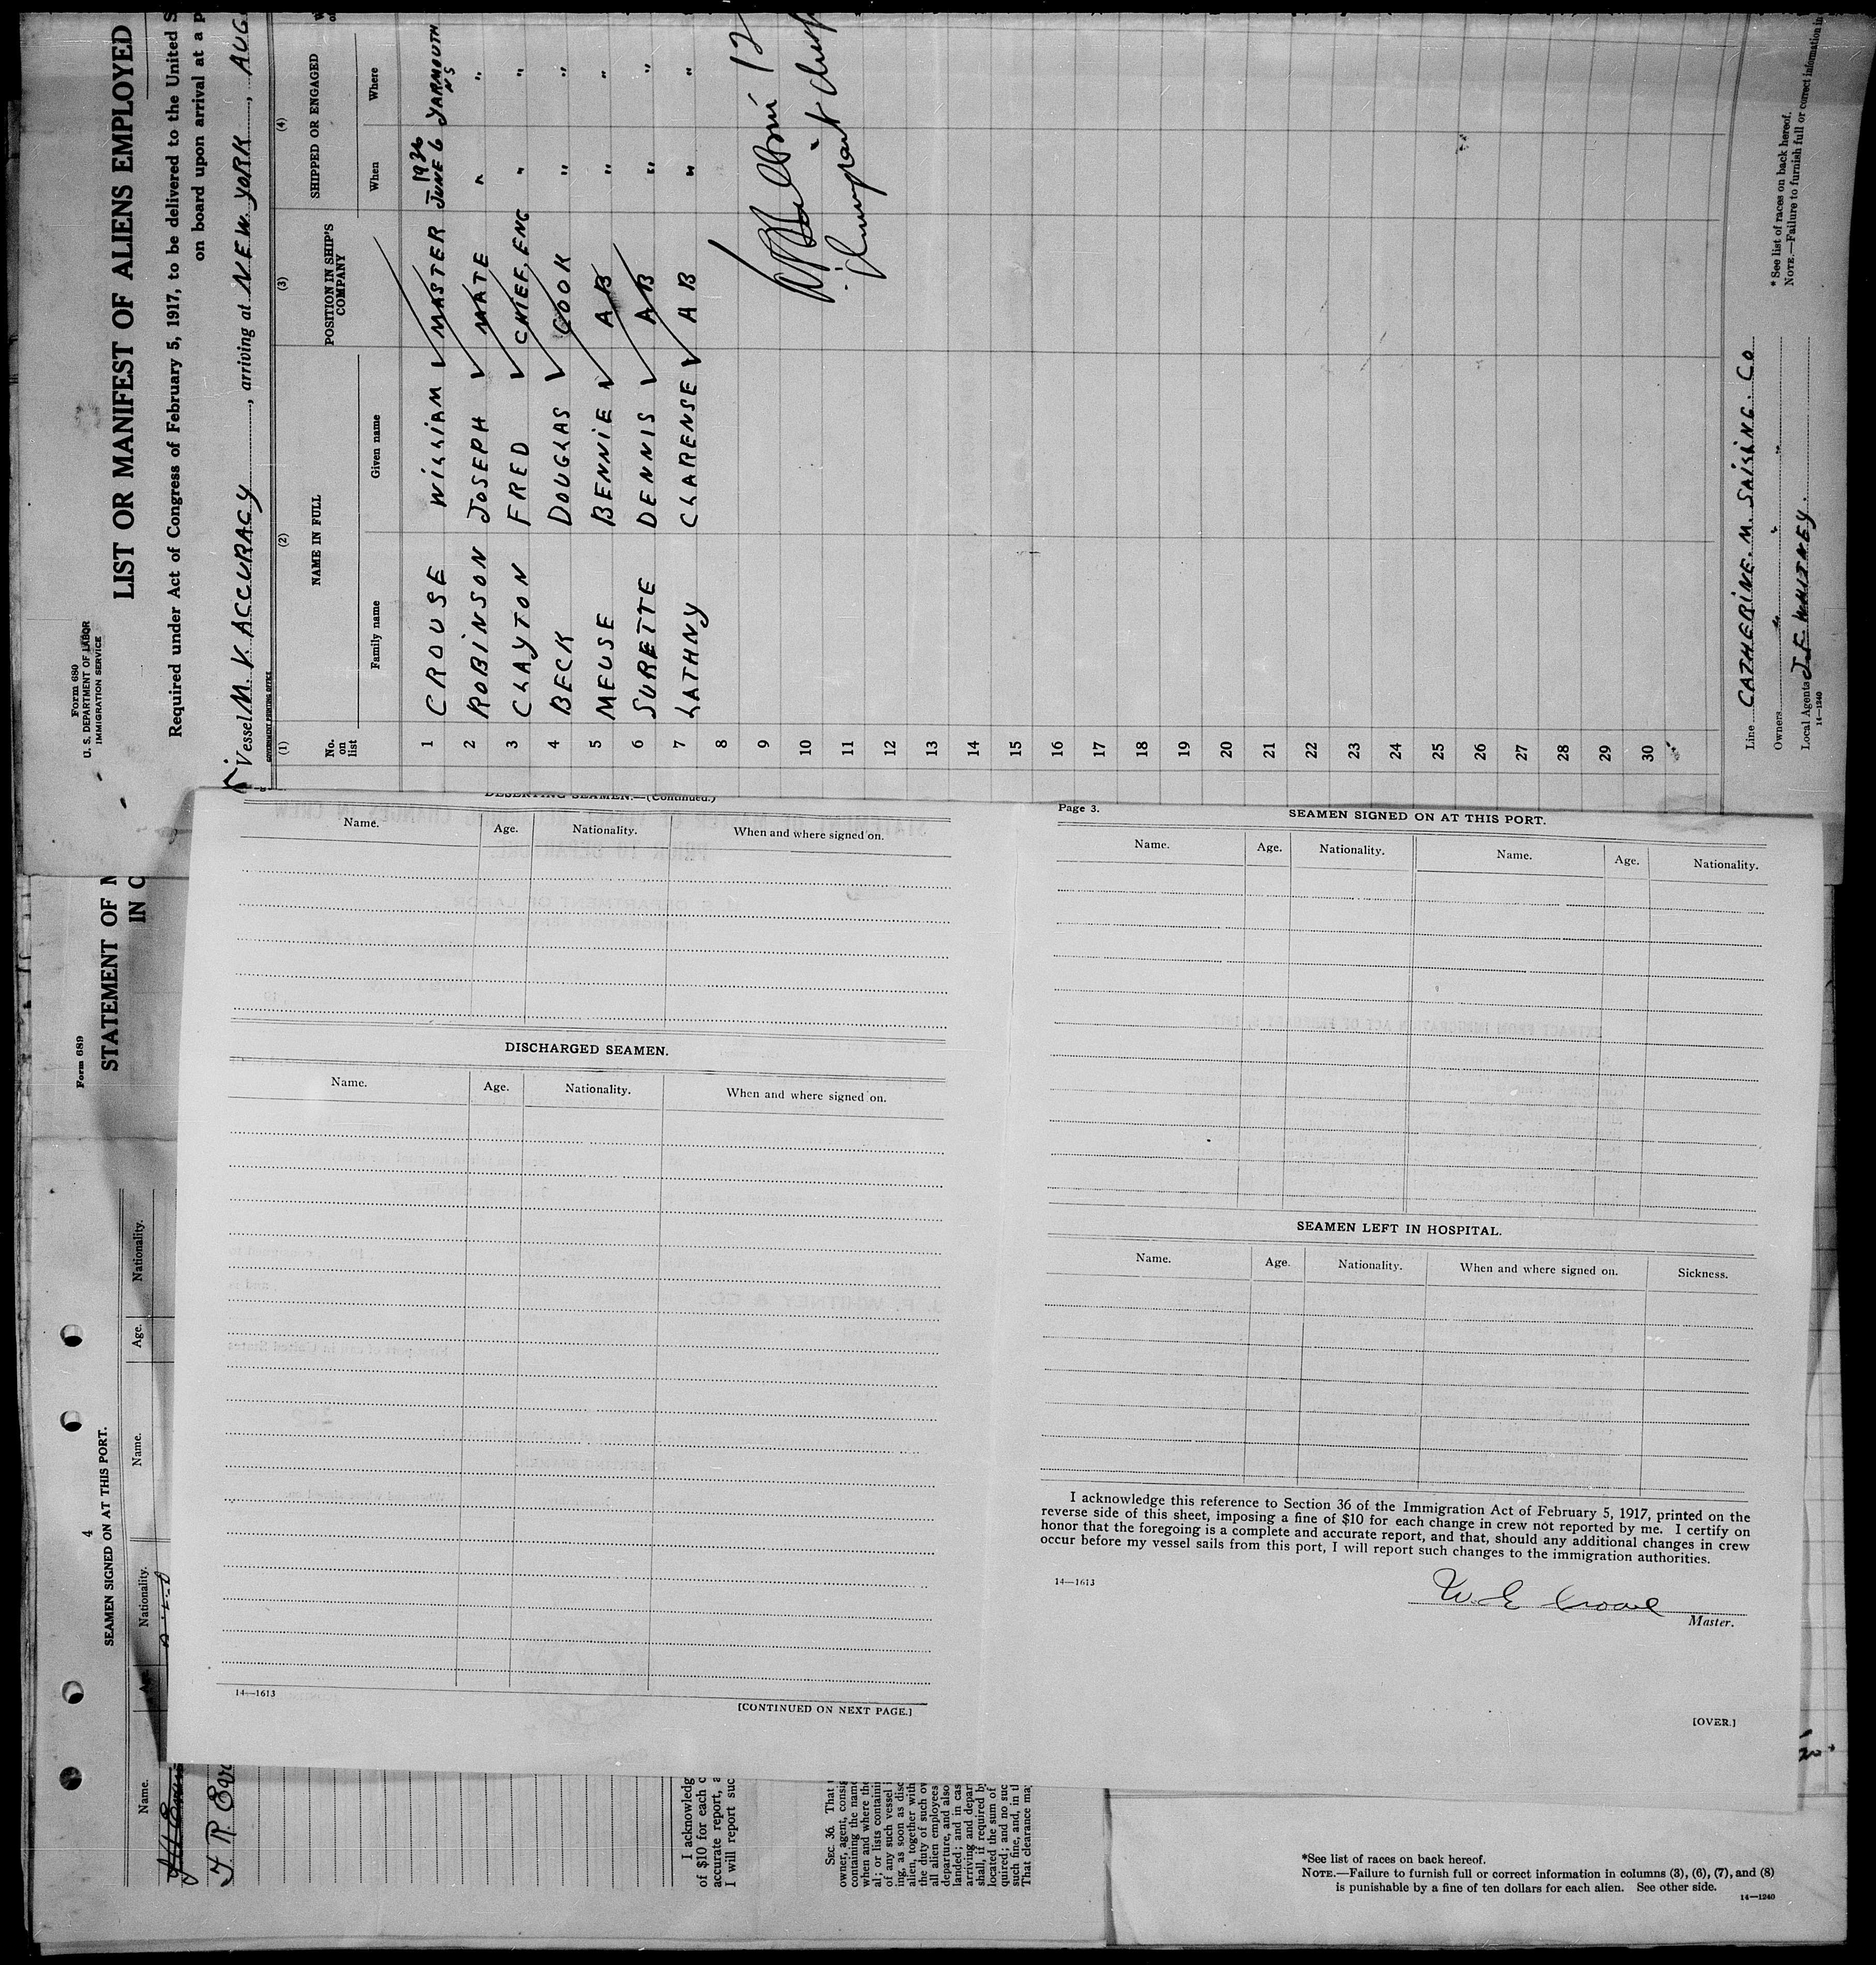 Form 680
U. S. DEPARTMENT OF LABOR
IMMIGRATION SERVICE
LIST OR MANIFEST OF ALIENS EMPLOYED
Required under Act of Congress of February 5, 1917, to be delivered to the United
on board upon arrival at a
Vessel M. V. ACCURACY, arriving at NEW YORK, AUG
GOVERNMENT PRINTING OFFICE
(1) (2) (3) (4)
No. on list NAME IN FULL POSITION IN SHIP'S COMPANY SHIPPED OR ENGAGED
Family name Given name When Where
1 CROUSE WILLIAM MASTER 1936 JUNE 6 YARMOUTH NS
2 ROBINSON JOSEPH MATE " "
3 CLAYTON FRED CHIEF. ENG " "
4 BECK DOUGLAS COOK " "
5 MEUSE BENNIE A B " "
6 SURETTE DENNIS A B " "
7 LATHNY CLARENSE A B " "
8
9
10
11
12
13
14
15
16
17
18
19
20
21
22
23
24
25
26
27
28
29
30
Line CATHERINE. M. SAILING. CO
Owners " " "
Local Agents J F WHITNEY.
14—1240
*See list of races on back hereof.
NOTE.—Failure to furnish full or correct information in
DESERTING SEAMEN.—(Continued.)
Name. Age. Nationality. When and where signed on.
DISCHARGED SEAMEN.
Name. Age. Nationality. When and where signed on.
14—1613
[CONTINUED ON NEXT PAGE.]
Page 3.
SEAMEN SIGNED ON AT THIS PORT.
Name. Age. Nationality. Name. Age. Nationality.
SEAMEN LEFT IN HOSPITAL.
Name. Age. Nationality. When and where signed on. Sickness.
I acknowledge this reference to Section 36 of the Immigration Act of February 5, 1917, printed on the
reverse side of this sheet, imposing a fine of $10 for each change in crew not reported by me. I certify on
honor that the foregoing is a complete and accurate report, and that, should any additional changes in crew
occur before my vessel sails from this port, I will report such changes to the immigration authorities.
14—1613
W. E Crouse
Master.
[OVER.]
Form 689
STATEMENT OF M
IN C
4
SEAMEN SIGNED ON AT THIS PORT.
Name. Age. Nationality. Name. Age. Nationality.
I acknowledg
of $10 for each c
accurate report, a
I will report suc
SEC. 36. That
owner, agent, consig
containing the name
when and where the
al; or lists containi
of any such vessel i
ing, as soon as disc
alien, together with
the duty of such ow
all alien employees
departure, and also
landed; and in cas
arriving and depar
shall, if required b
located the sum of
quired; and no suc
such fine, and, in t
That clearance ma
*See list of races on back hereof.
NOTE.—Failure to furnish full or correct information in columns (3), (6), (7), and (8)
is punishable by a fine of ten dollars for each alien. See other side.
14—1240